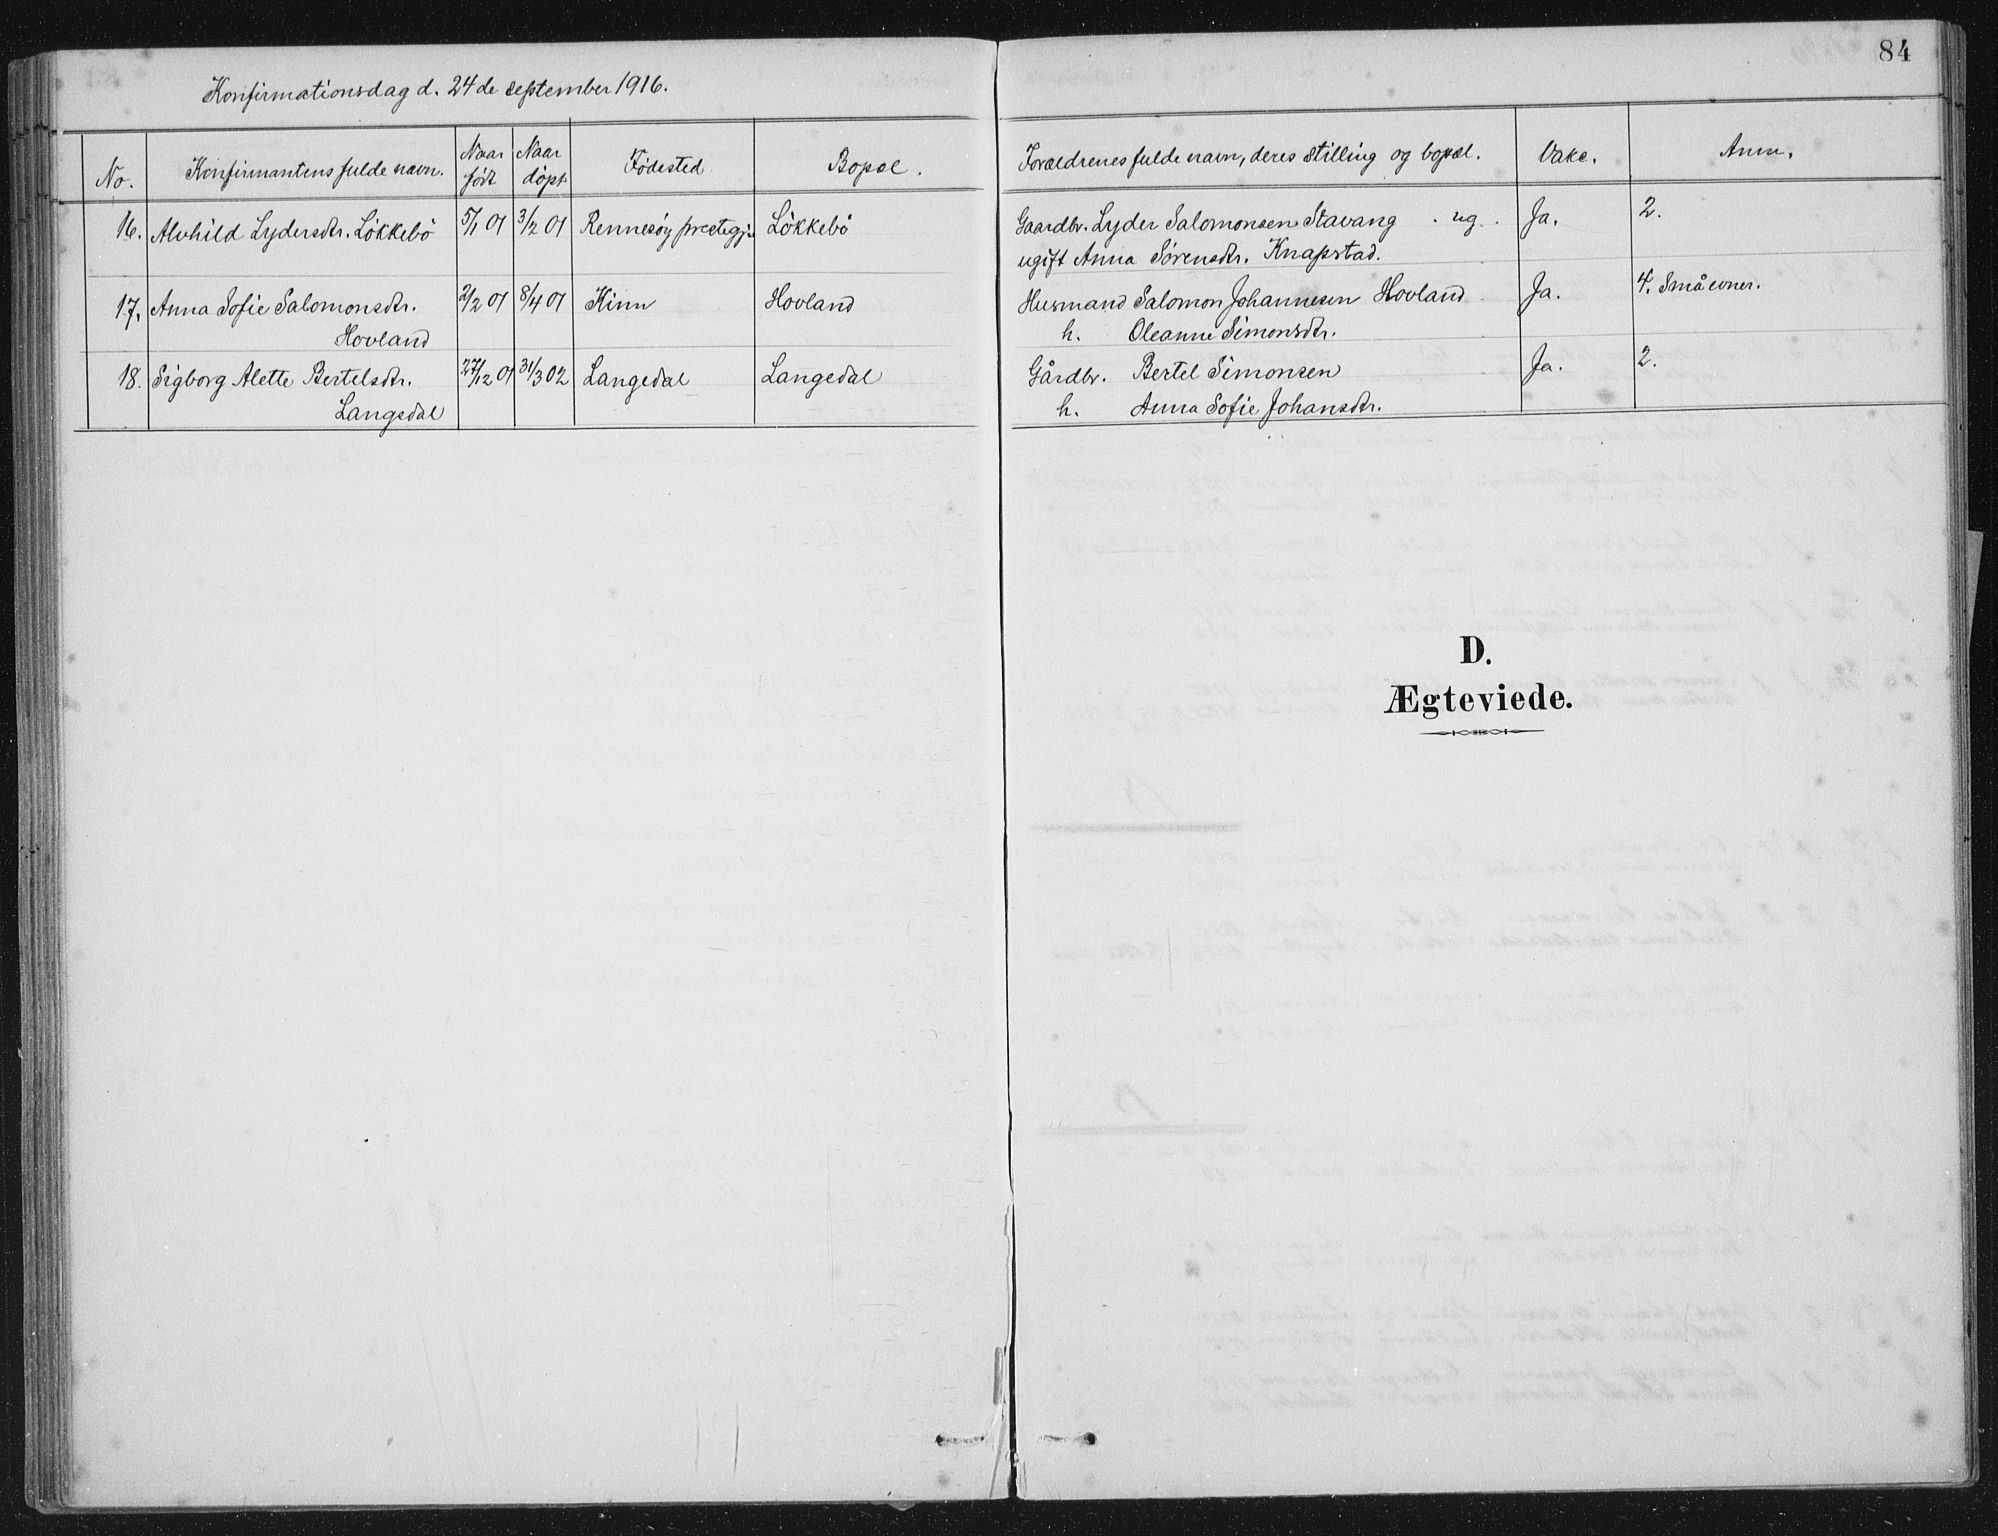 84
Konfirmationsdag d. 24de september 1916.
No. Konfirmantens fulde navn. Naar født Naar døpt Fødested Bopæl. Forældrenes fulde navn, deres stilling og bopæl. Vakc. Anm.
16. Alvhild Lydersdtr. Løkkebö 5/1 01 3/2 01 Rennesöy prestegj. Løkkebö Gaardbr. Lyder Salomonsen Stavang . ug . Ja. 2.
ugift Anna Sørensdtr. Knapstad.
17. Anna Sofie Salomonsdtr. 2/2 01 8/4 01 Kinn Hovland Husmand Salomon Johannesen Hovland Ja. 4. Små evner.
Hovland h. Oleanne Simonsdtr.
18. Sigborg Alette Bertelsdtr. 27/12 01 31/3 02 Langedal Langedal Gårdbr. Bertel Simonsen Ja. 2.
Langedal h. Anna Sofie Johansdtr.
D.
Ægteviede.